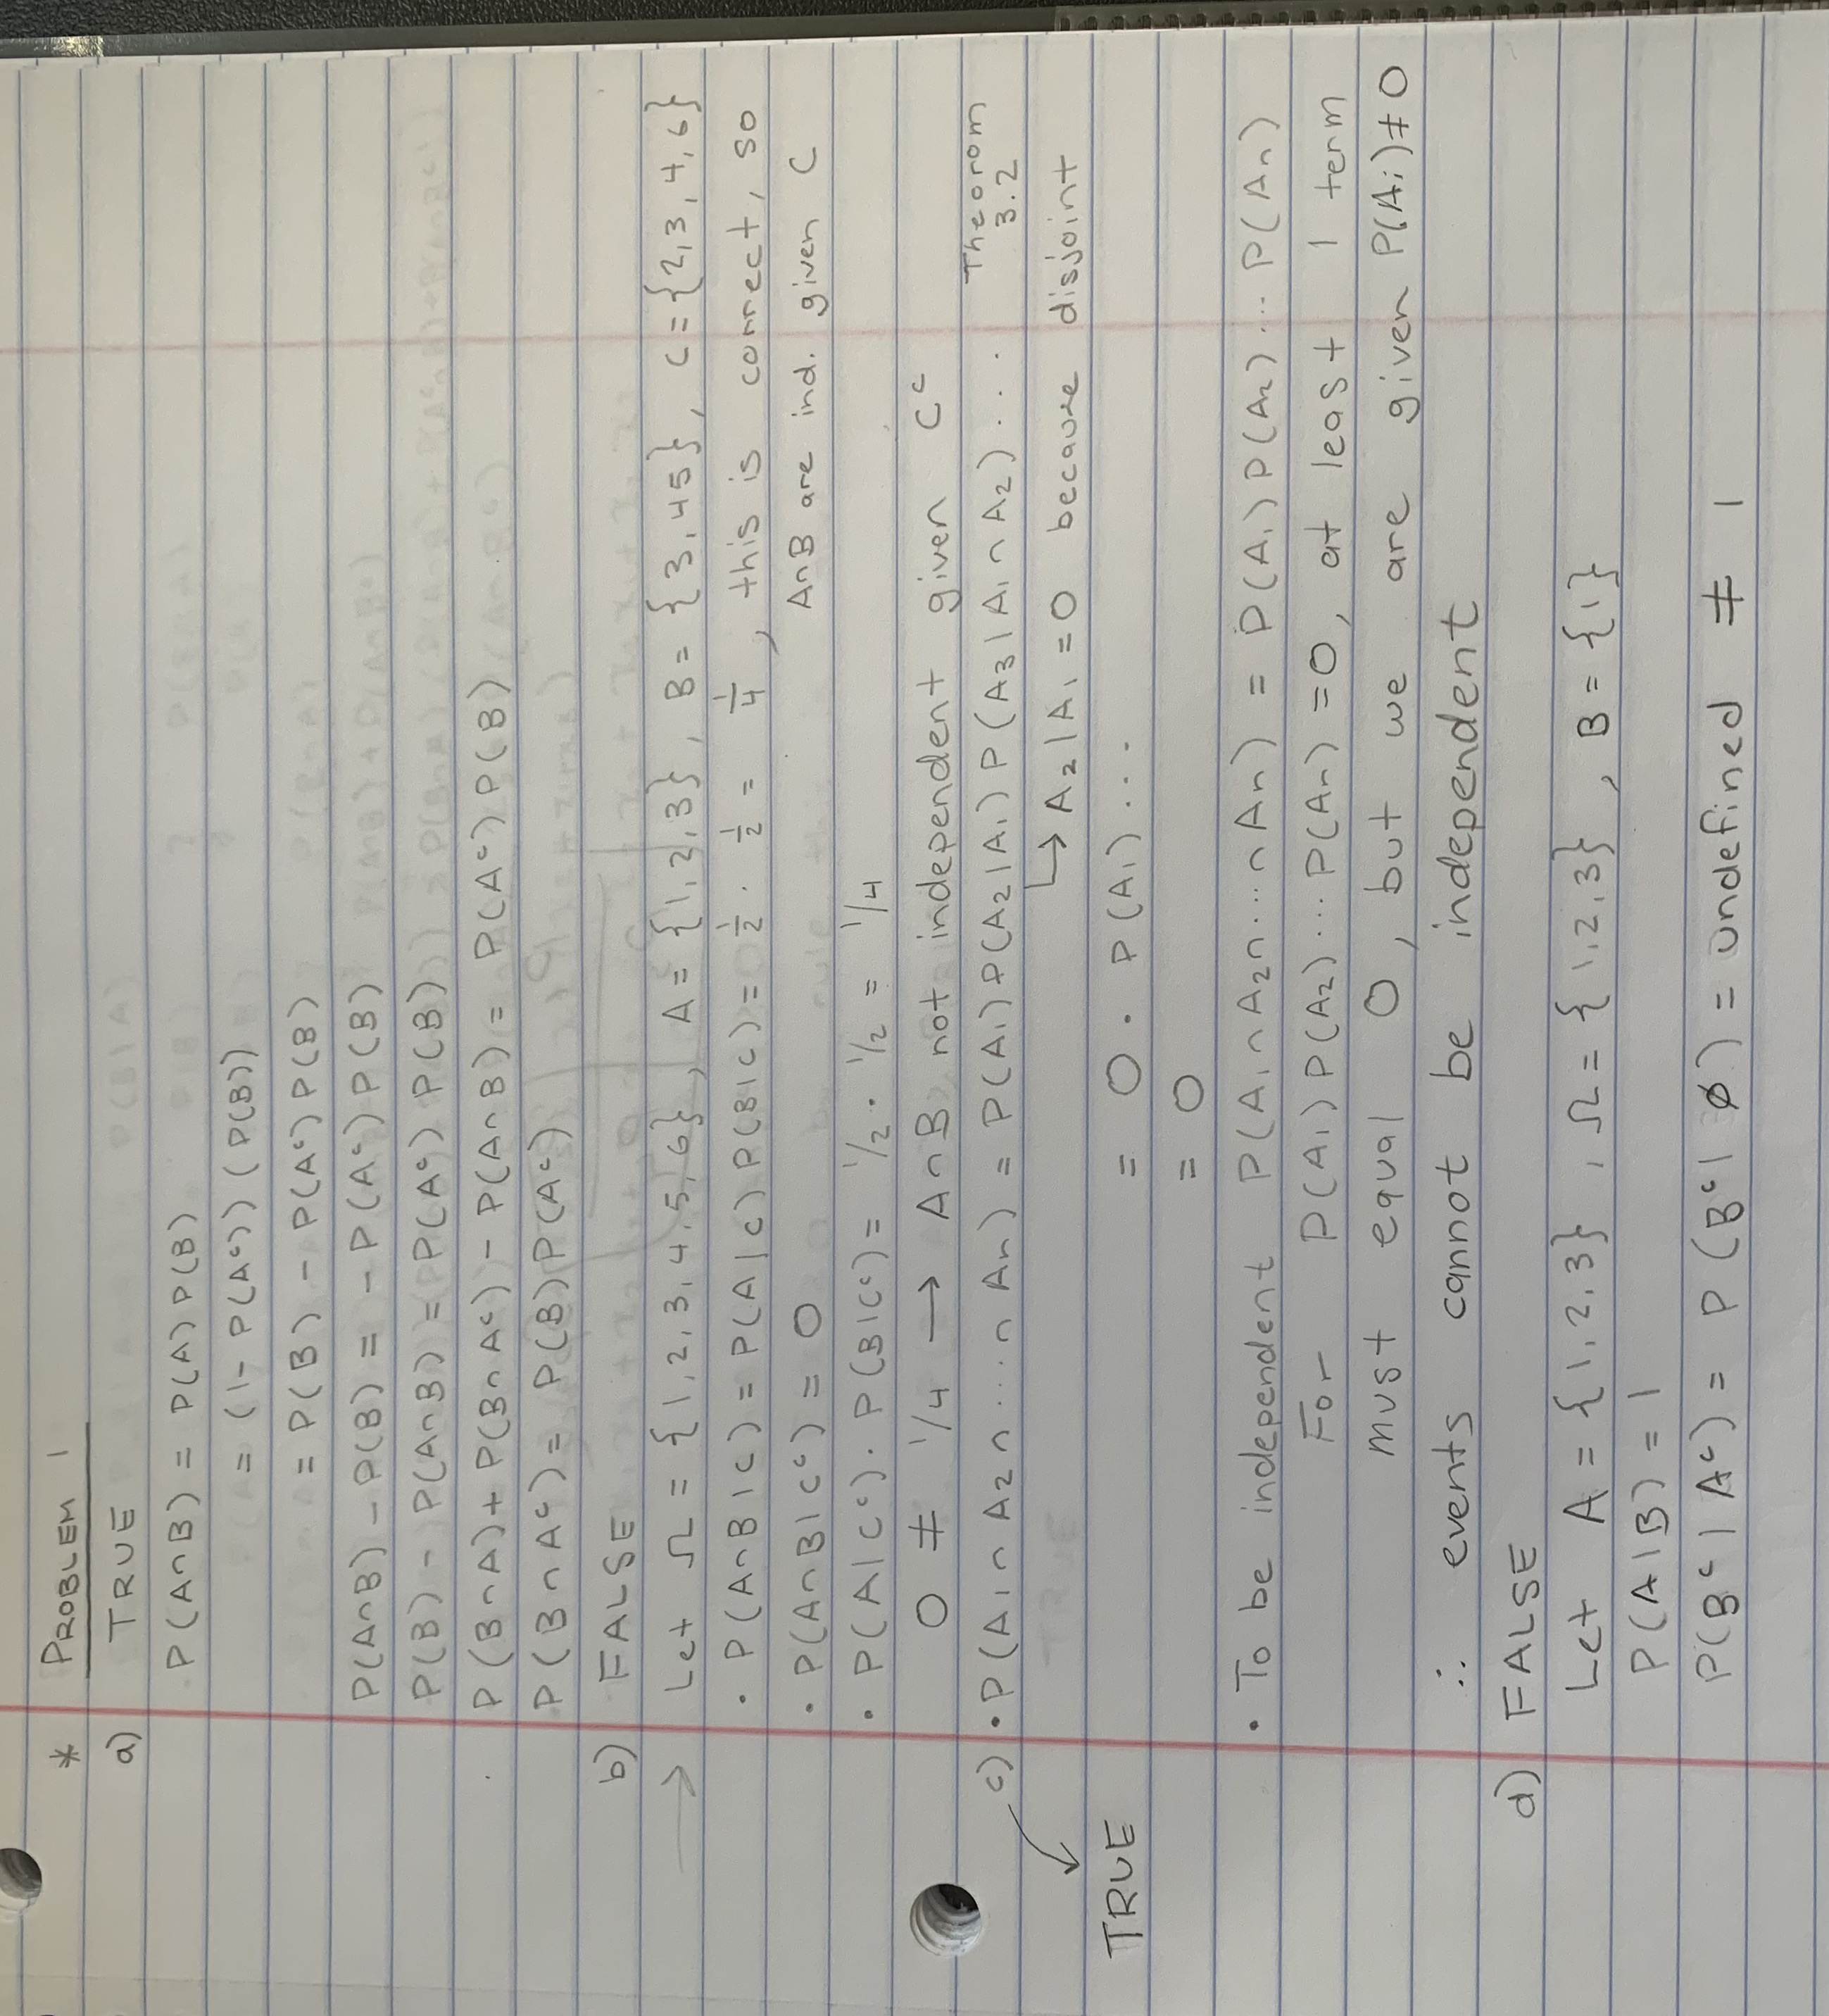 * PROBLEM 1
a) TRUE
P(A∩B) = P(A) P(B)
= (1 - P(Aᶜ)) (P(B))
= P(B) - P(Aᶜ) P(B)
P(A∩B) - P(B) = - P(Aᶜ) P(B)
P(B) - P(A∩B) = P(Aᶜ) P(B)
P(B∩A) + P(B∩Aᶜ) - P(A∩B) = P(Aᶜ) P(B)
P(B∩Aᶜ) = P(B) P(Aᶜ)
b) FALSE
→ Let Ω = {1,2,3,4,5,6}, A = {1,2,3}, B = {3,45}, C = {2,3,4,6}
• P(A∩B|C) = P(A|C) P(B|C) = 1/2 · 1/2 = 1/4, this is correct, so
A∩B are ind. given C
• P(A∩B|Cᶜ) = 0
• P(A|Cᶜ) · P(B|Cᶜ) = 1/2 · 1/2 = 1/4
0 ≠ 1/4 → A∩B not independent given Cᶜ
c) • P(A₁∩A₂∩···∩Aₙ) = P(A₁) P(A₂|A₁) P(A₃|A₁∩A₂)... Theorom 3.2
↳ A₂|A₁ = 0 because disjoint
TRUE
= 0 · P(A₁)...
= 0
• To be independent P(A₁∩A₂∩···∩Aₙ) = P(A₁) P(A₂)... P(Aₙ)
For P(A₁) P(A₂)... P(Aₙ) = 0, at least 1 term
must equal 0, but we are given P(Aᵢ) ≠ 0
∴ events cannot be independent
d) FALSE
Let A = {1,2,3}, Ω = {1,2,3}, B = {1}
P(A|B) = 1
P(Bᶜ|Aᶜ) = P(Bᶜ|∅) = undefined ≠ 1